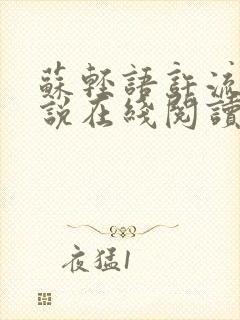 蘇輕語許流
說在綫閱讀
夜猛1